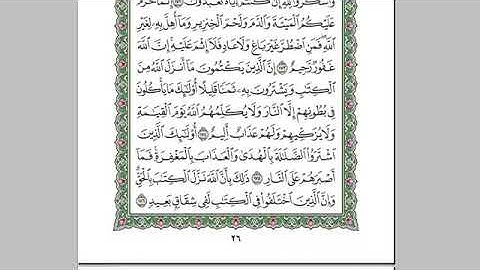 وَٱشْكُرُوا۟ لِلَّهِ إِن كُنتُمْ إِيَّاهُ تَعْبُدُونَ ١٧٢ إِنَّمَا حَرَّمَ
عَلَيْكُمُ ٱلْمَيْتَةَ وَٱلدَّمَ وَلَحْمَ ٱلْخِنزِيرِ وَمَآ أُهِلَّ بِهِۦ لِغَيْرِ
ٱللَّهِ فَمَنِ ٱضْطُرَّ غَيْرَ بَاغٍ وَلَا عَادٍ فَلَآ إِثْمَ عَلَيْهِ إِنَّ ٱللَّهَ
غَفُورٌ رَّحِيمٌ ١٧٣ إِنَّ ٱلَّذِينَ يَكْتُمُونَ مَآ أَنزَلَ ٱللَّهُ مِنَ
ٱلْكِتَٰبِ وَيَشْتَرُونَ بِهِۦ ثَمَنًا قَلِيلًا أُو۟لَٰٓئِكَ مَا يَأْكُلُونَ
فِى بُطُونِهِمْ إِلَّا ٱلنَّارَ وَلَا يُكَلِّمُهُمُ ٱللَّهُ يَوْمَ ٱلْقِيَٰمَةِ
وَلَا يُزَكِّيهِمْ وَلَهُمْ عَذَابٌ أَلِيمٌ ١٧٤ أُو۟لَٰٓئِكَ ٱلَّذِينَ
ٱشْتَرَوُا۟ ٱلضَّلَٰلَةَ بِٱلْهُدَىٰ وَٱلْعَذَابَ بِٱلْمَغْفِرَةِ فَمَآ
أَصْبَرَهُمْ عَلَى ٱلنَّارِ ١٧٥ ذَٰلِكَ بِأَنَّ ٱللَّهَ نَزَّلَ ٱلْكِتَٰبَ بِٱلْحَقِّ
وَإِنَّ ٱلَّذِينَ ٱخْتَلَفُوا۟ فِى ٱلْكِتَٰبِ لَفِى شِقَاقٍۭ بَعِيدٍ ١٧٦
٢٦